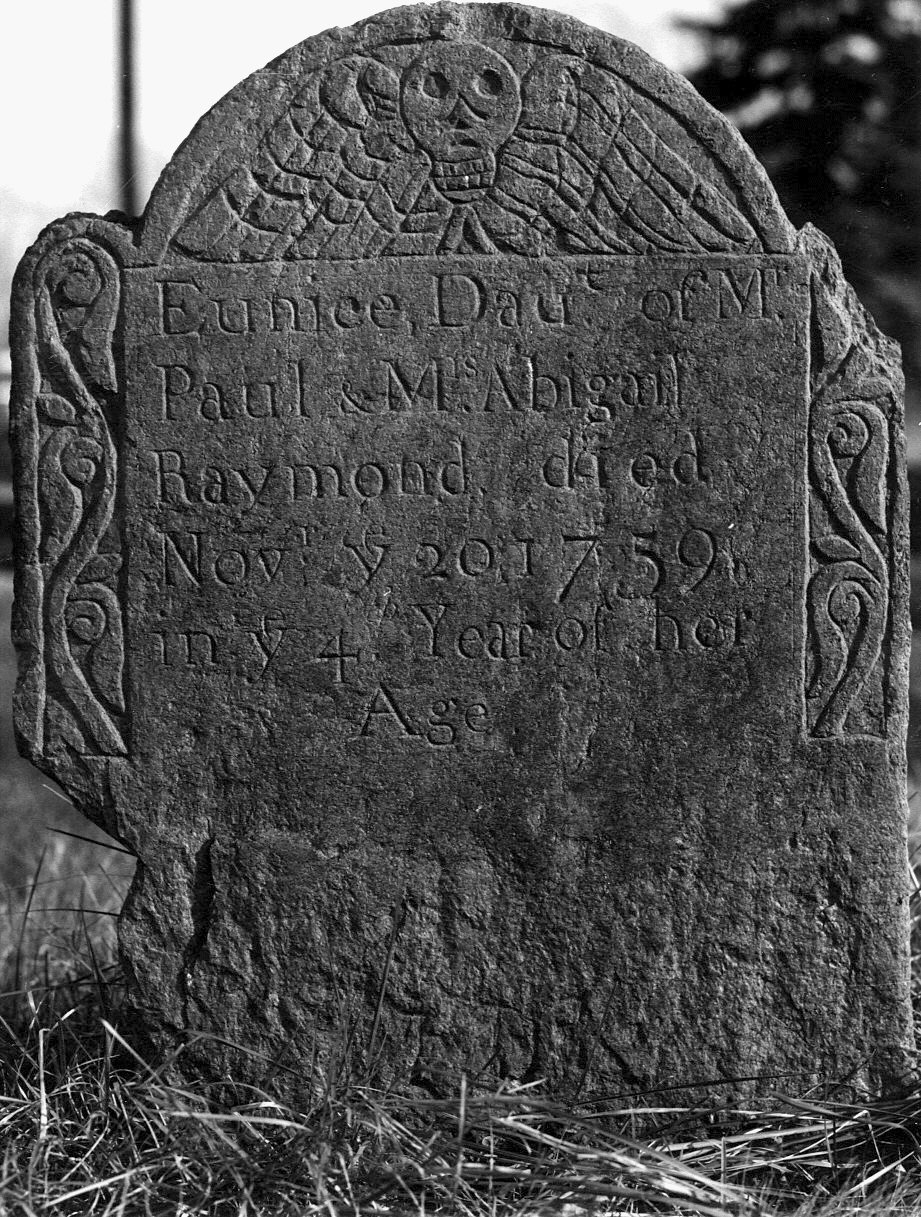 Eunice, Dauᵗ. of Mʳ.
Paul & Mʳˢ. Abigail
Raymond, died
Novʳ. yᵉ 20, 1759,
in yᵉ 4ᵗʰ Year of her
Age